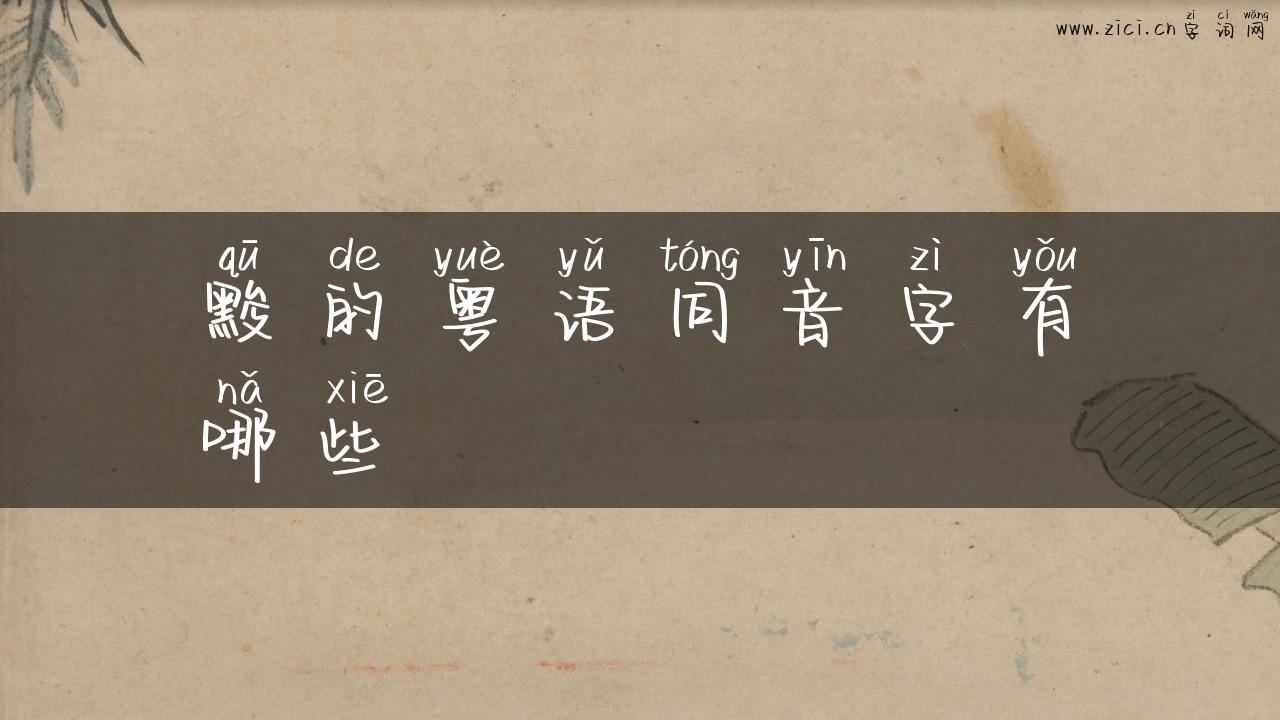 zì cí wǎng
www.zici.cn 字词网
qū de yuè yǔ tóng yīn zì yǒu
黢的粤语同音字有
nǎ xiē
哪些